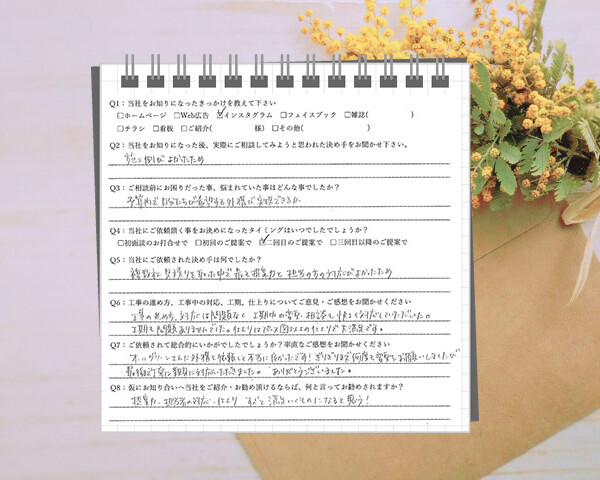 Q1：当社をお知りになったきっかけを教えて下さい
□ホームページ □Web広告 ☑インスタグラム □フェイスブック □雑誌( )
□チラシ □看板 □ご紹介( 様) □その他( )
Q2：当社をお知りになった後、実際にご相談してみようと思われた決め手をお聞かせ下さい。
施工例がよかったため
Q3：ご相談前にお困りだった事、悩まれていた事はどんな事でしたか？
予算内で自分たちが希望する外構が実現できるか
Q4：当社にご依頼頂く事をお決めになったタイミングはいつでしたでしょうか？
□初面談のお打合せで □初回のご提案で ☑二回目のご提案で □三回目以降のご提案で
Q5：当社にご依頼された決め手は何でしたか？
複数社見積りを取った中で最も提案力と担当の方の対応がよかったため
Q6：工事の進め方、工事中の対応、工期、仕上りについてご意見・ご感想をお聞かせください
工事の進め方、対応は問題なく、工期中の変更、相談も快よく対応していただいた。
工期も問題ありませんでした。仕上りは 以上の仕上りで大満足です。
Q7：ご依頼されて総合的にいかがでしたでしょうか？率直なご感想をお聞かせください
オールグリーンさんに外構を依頼して本当に良かったです！ぎりぎりまで何度も変更をお願いしましたが
最後まで 対応いただきました。ありがとうございました。
Q8：仮にお知り合いへ当社をご紹介・お勧め頂けるならば、何と言ってお勧めされますか？
提案力、担当者の対応、仕上り すべて満足いくものになると思う！